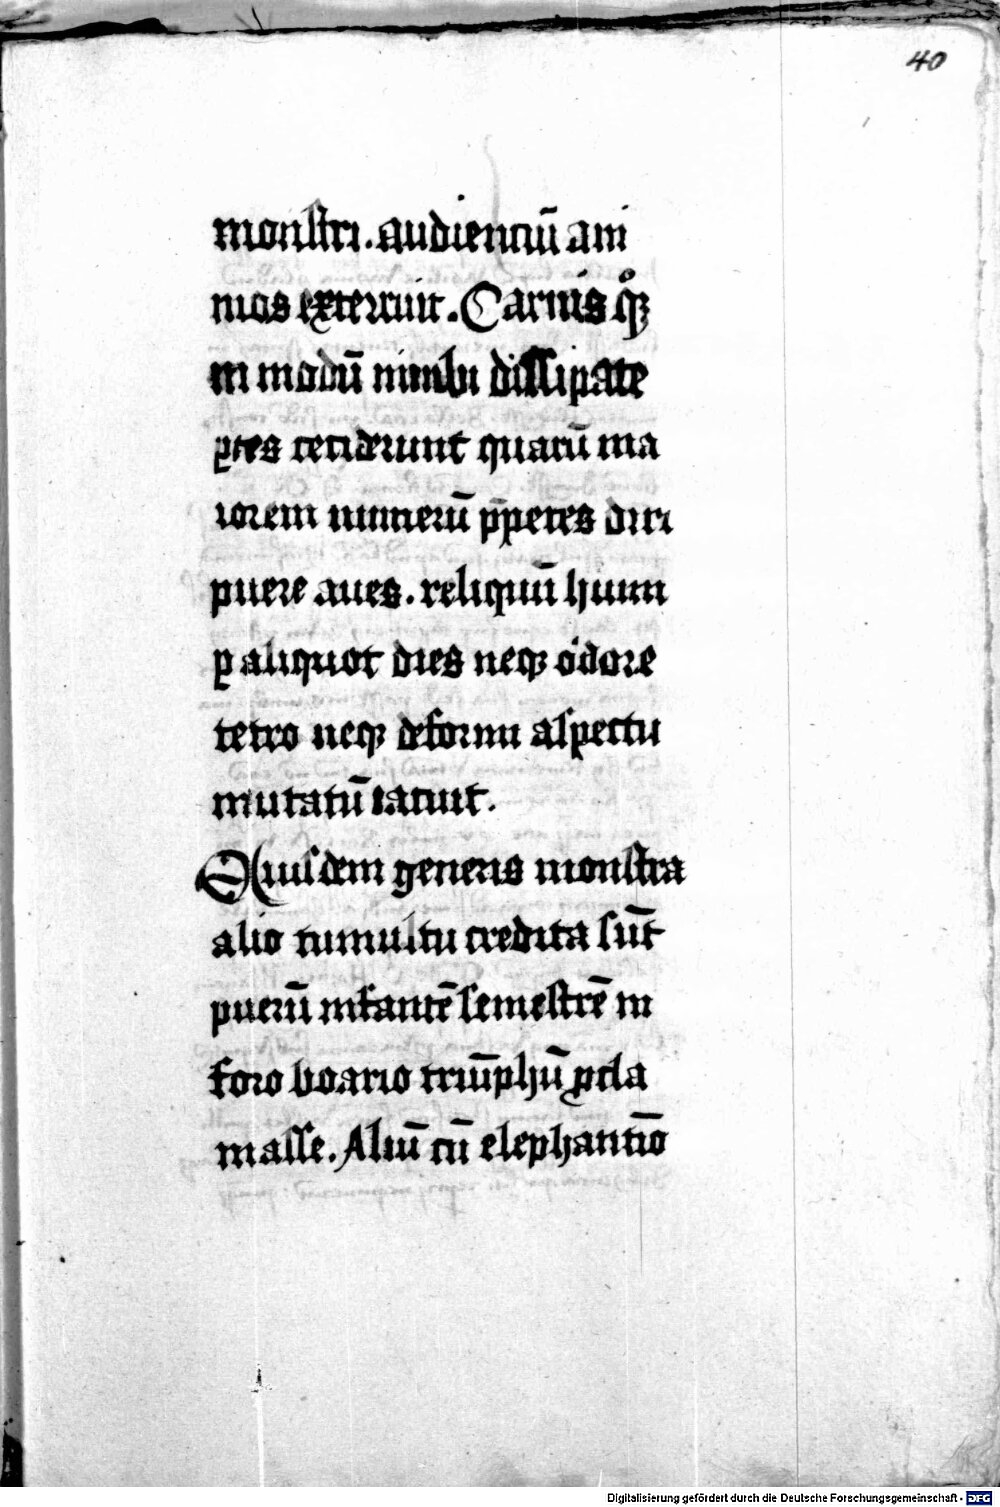 40
monstri. audienciū ani
mos exterruit. Carnis qͦꝫ
in modū nimbi dissipate
ꝑtes ceciderunt quarū ma
iorem numerū p̄petes diri
puere aues. reliquū humi
ꝑ aliquot dies neqꝫ odore
tetro neqꝫ deformi aspectu
mutatū iacuit.
Eiusdem generis monstra
alio tumultu credita sūt
puerū infantē semestrē in
foro boario triūphū ꝓcla
masse. Aliū cū elephantīo
Digitalisierung gefördert durch die Deutsche Forschungsgemeinschaft - DFG